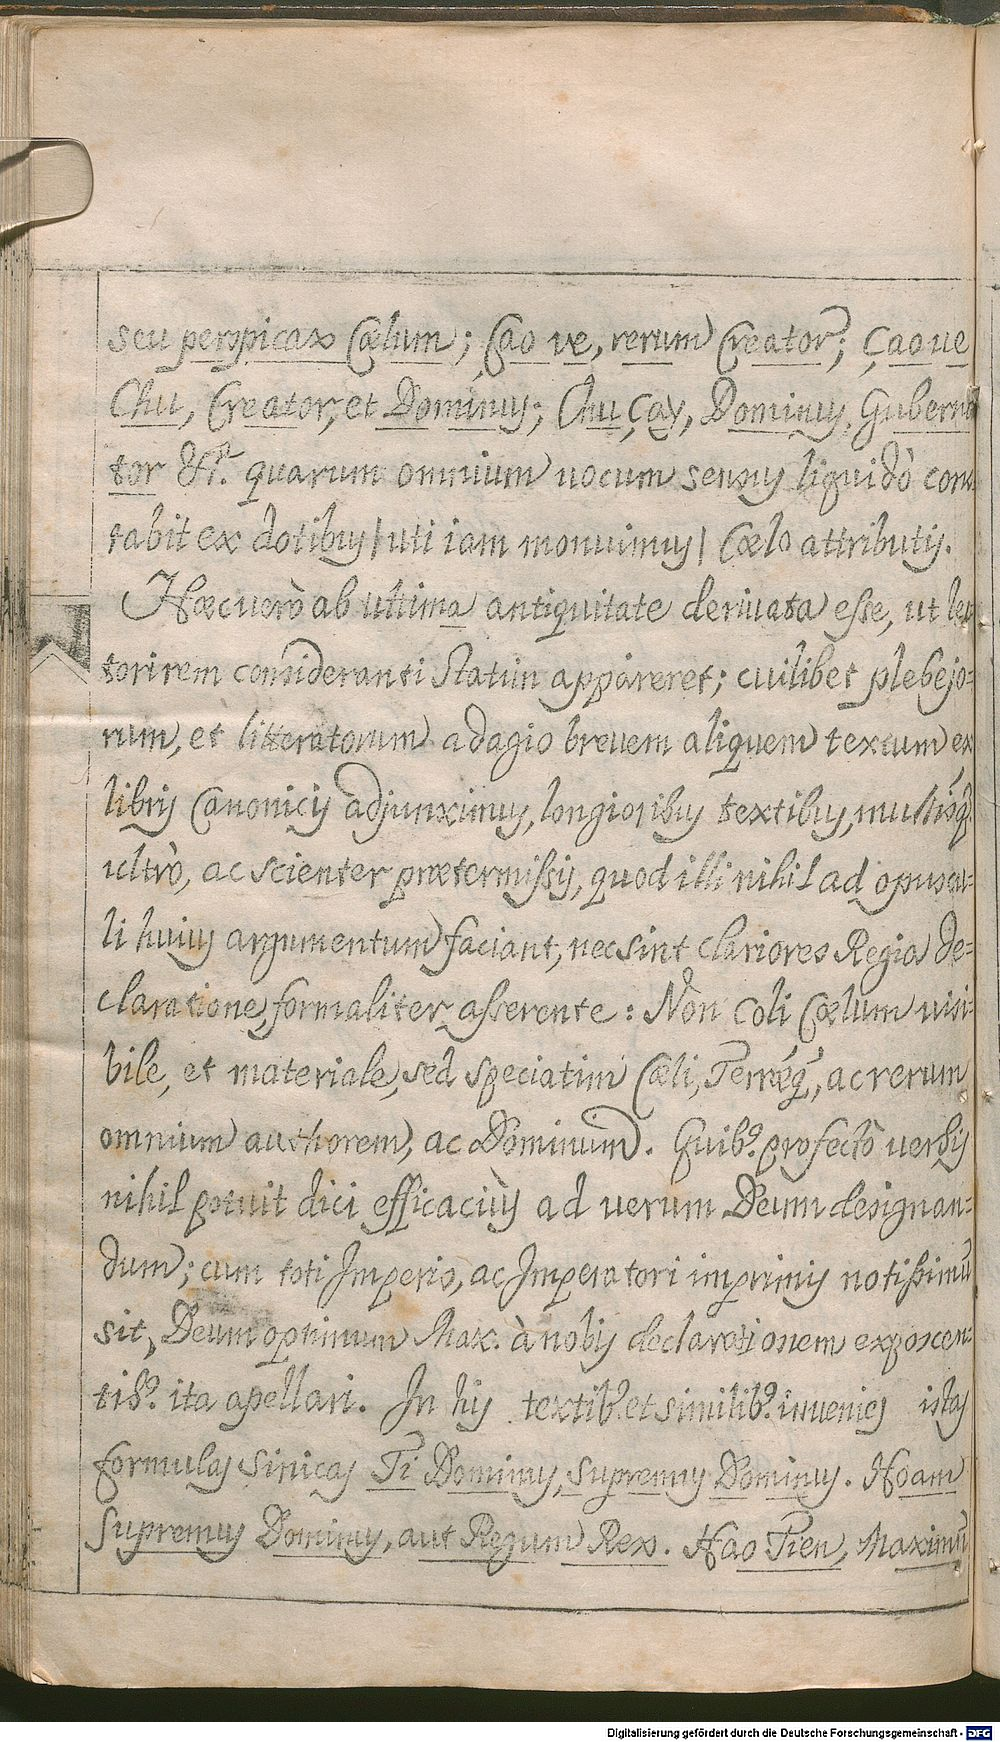 seu perspicax Cœlum; Çao ve, rerum Creator; Çao ue
Chu, Creator, et Dominus; Chu Çay, Dominus, Guberna
tor &c. quarum omnium uocum sensus liquidò cons
tabit ex dotibus | uti iam monuimus | Cœlo attributis.
Hæc uerò ab ultima antiquitate deriuata esse, ut lec
tori rem consideranti statim appareret; cuilibet plebejo=
rum, et litteratorum adagio breuem aliquem textum ex
libris Canonicis adjunximus, longioribus textibus, multisq́.
ultrò, ac scienter prætermissis, quod illi nihil ad opuscu=
li huius argumentum faciant, nec sint clariores Regia de=
claratione, formaliter asserente: Non coli Cœlum uisi=
bile, et materiale, sed speciatim Cæli, Terræq́, ac rerum
omnium authorem, ac Dominum. Quib9. profectò verbis
nihil potuit dici efficaciùs ad verum Deum designan=
dum; cum toti Imperio, ac Imperatori imprimis notissimū
sit, Deum optimum Max. à nobis declarationem exposcen=
tib9. ita apellari. In his textib9. et similib9. inuenies istas
formulas Sinicas Ti Dominus, supremus Dominus. Hoam
Supremus Dominus, aut Regum Rex. Hao Tien, Maximū
Digitalisierung gefördert durch die Deutsche Forschungsgemeinschaft - DFG